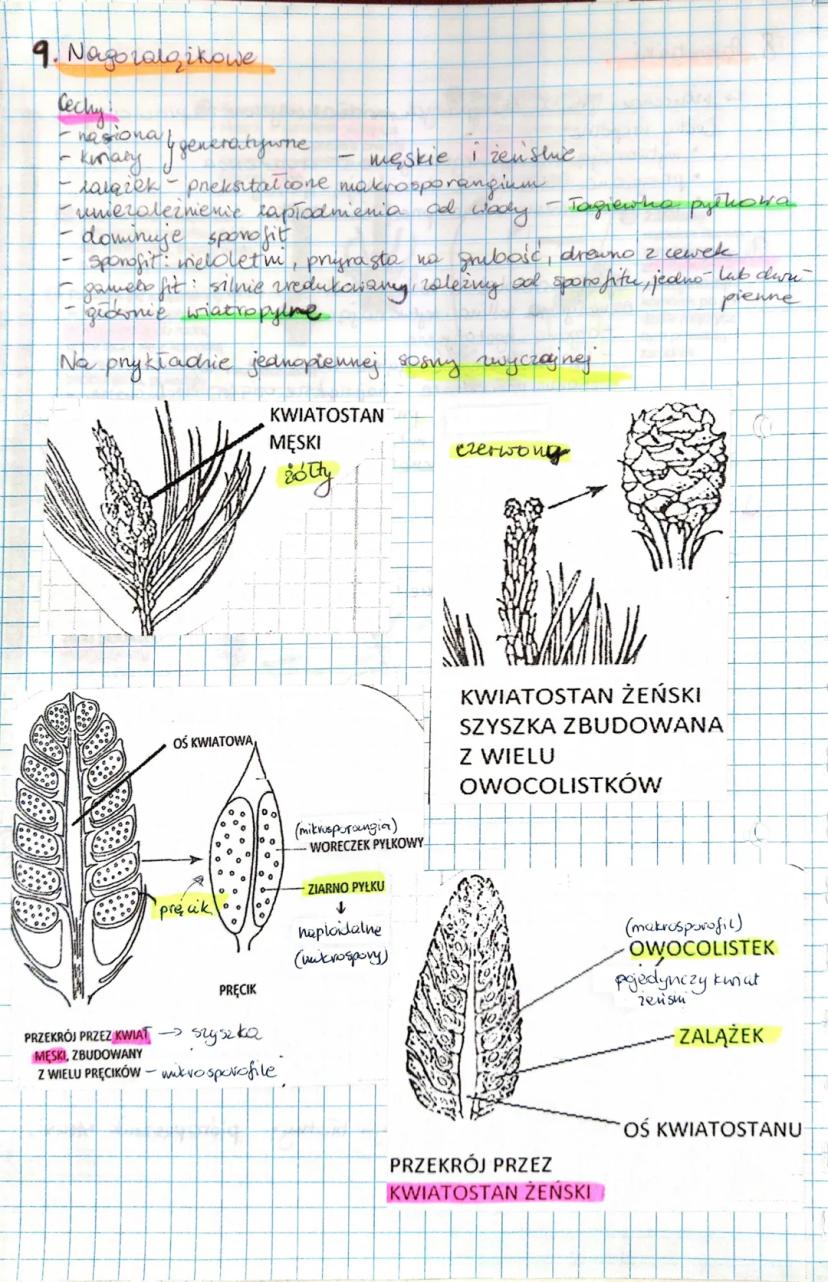 9. Nagozalążkowe
Cechy:
- nasiona } generatywne
- kwiaty - męskie i żeńskie
- zalążek - przekształcone makrosporangium
- uniezależnienie zapłodnienia od wody - łagiewka pyłkowa
- dominuje sporofit
- sporofit: wieloletni, przyrasta na grubość, drewno z cewek
- gametofit: silnie zredukowany, zależny od sporofitu, jedno- lub dwu-
pienne
- głównie wiatropylne
Na przykładzie jednopiennej sosny zwyczajnej
KWIATOSTAN
MĘSKI
żółty
czerwony
KWIATOSTAN ŻEŃSKI
SZYSZKA ZBUDOWANA
Z WIELU
OWOCOLISTKÓW
OŚ KWIATOWA
(mikrosporangia)
WORECZEK PYŁKOWY
ZIARNO PYŁKU
pręcik
haploidalne
(mikrospory)
PRĘCIK
PRZEKRÓJ PRZEZ KWIAT → szyszka
MĘSKI, ZBUDOWANY
Z WIELU PRĘCIKÓW - mikrosporofile
(makrosporofil)
OWOCOLISTEK
pojedynczy kwiat
żeński
ZALĄŻEK
OŚ KWIATOSTANU
PRZEKRÓJ PRZEZ
KWIATOSTAN ŻEŃSKI